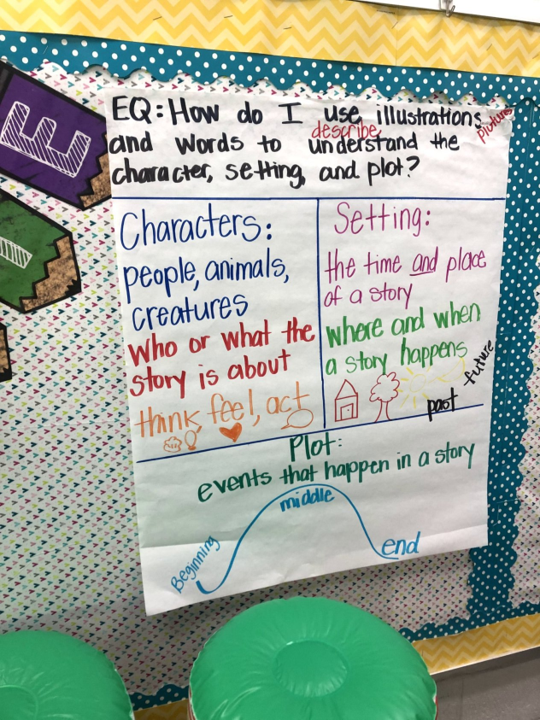 E
EQ: How do I use illustrations
pictures
describe
and words to understand the
character, setting, and plot?
Characters:
people, animals,
creatures
Who or what the
story is about
think, feel, act
Setting:
the time and place
of a story
where and when
a story happens
past
future
Plot:
events that happen in a story
Beginning
middle
end